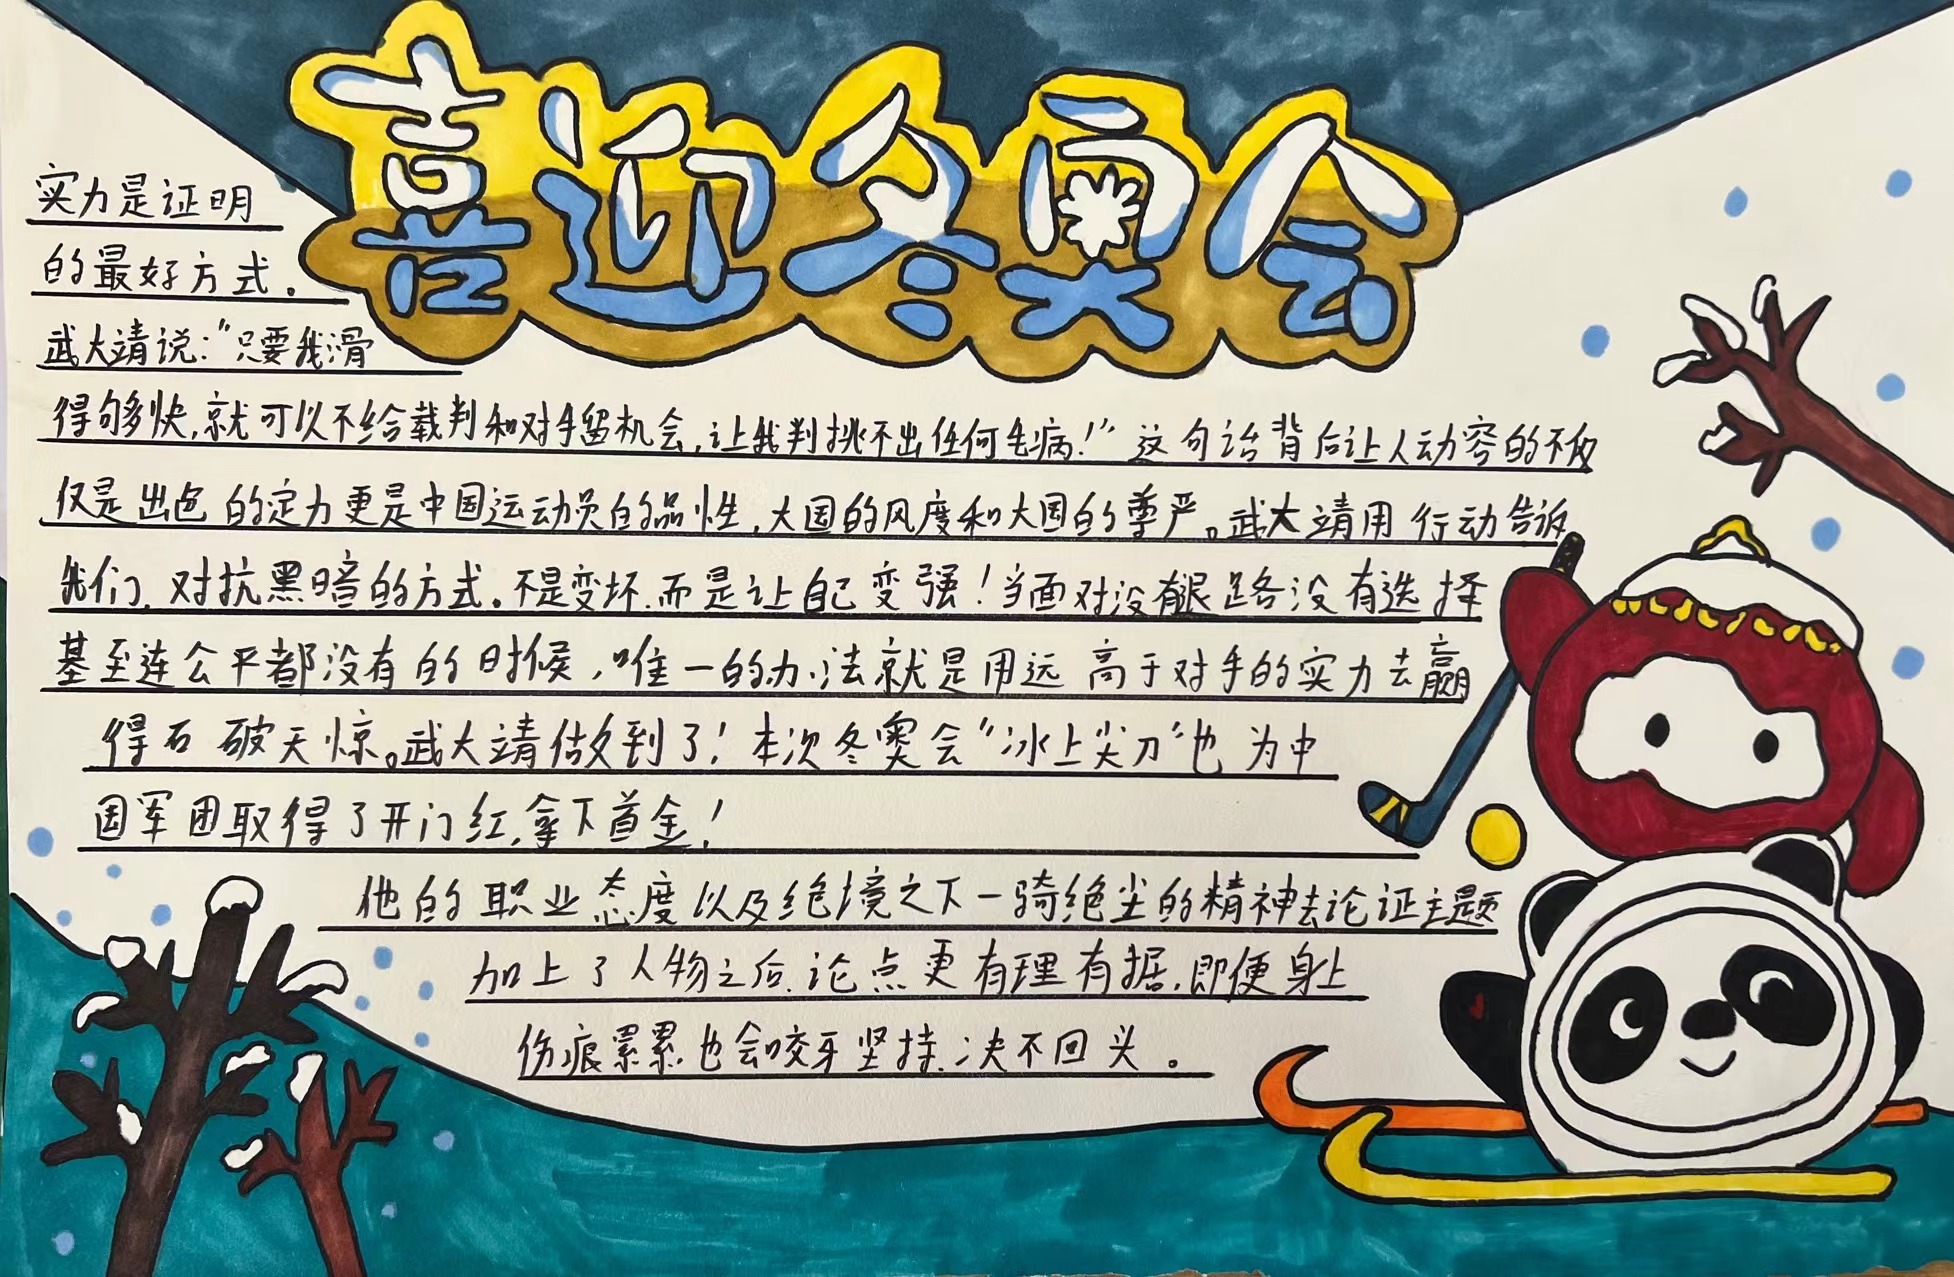 喜迎冬奥会
实力是证明
的最好方式。
武大靖说:"只要我滑
得够快,就可以不给裁判和对手留机会,让我判挑不出任何毛病!"这句话背后让人动容的不仅
仅是出色的定力更是中国运动员的品性,大国的风度和大国的尊严。武大靖用行动告诉
我们,对抗黑暗的方式。不是变坏.而是让自己变强!当面对没有退路没有选择
基至连公平都没有的时候,唯一的办法就是用远高于对手的实力去赢
得石破天惊。武大靖做到了!本次冬奥会"冰上尖刀"也为中
国军团取得了开门红,拿下首金!
他的职业态度以及绝境之下一骑绝尘的精神去论证主题
加上了人物之后.论点更有理有据.即便身上
伤痕累累.也会咬牙坚持.决不回头。